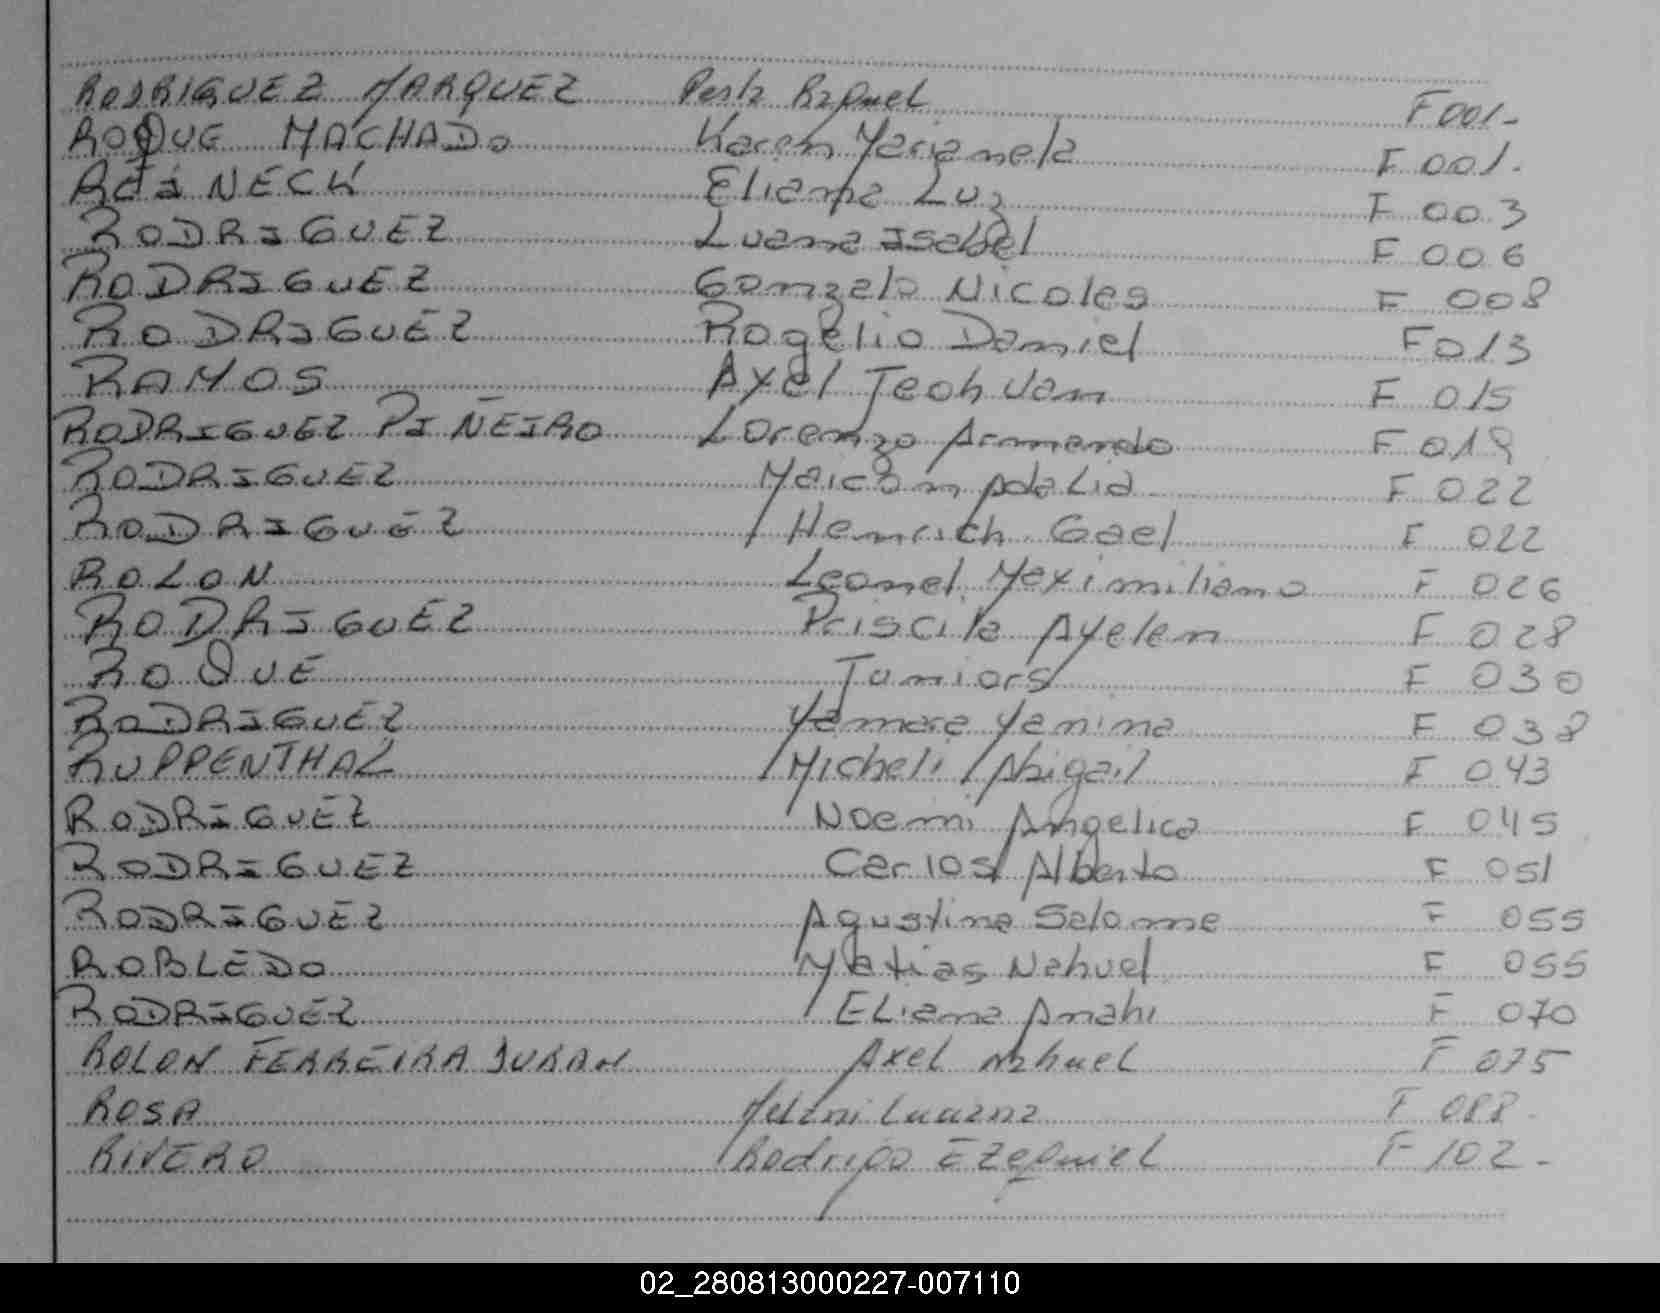 RODRIGUEZ MARQUEZ Perla Raquel F 001.-
ROQUE MACHADO Karen Marianela F 001.
REINECK Eliana Luz F 003
RODRIGUEZ Luana Isabel F 006
RODRIGUEZ Gonzalo Nicolas F 008
RODRIGUEZ Rogelio Daniel F 013
RAMOS Axel Jeohvam F 015
RODRIGUEZ PIÑEIRO Lorenzo Armando F 019
RODRIGUEZ Maicom Adalid F 022
RODRIGUEZ Henrich Gael F 022
ROLON Leonel Maximiliano F 026
RODRIGUEZ Priscila Ayelen F 028
ROQUE Juniors F 030
RODRIGUEZ Yamara Yanina F 038
RUPPENTHAL Micheli Abigail F 043
RODRIGUEZ Noemi Angelica F 045
RODRIGUEZ Carlos Alberto F 051
RODRIGUEZ Agustina Salome F 055
ROBLEDO Matias Nahuel F 055
RODRIGUEZ Eliana Anahi F 070
ROLON FERREIRA Axel Nahuel F 075
ROSA Melani Luana F 088.
RIVERO Rodrigo Ezequiel F 102.-
02_280813000227-007110